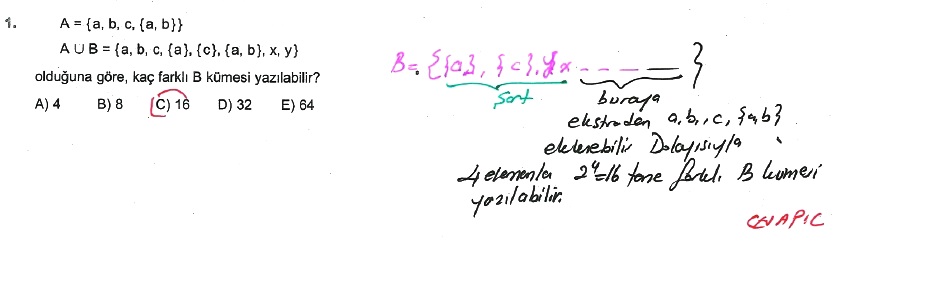 1. A = {a, b, c, {a, b}}
A ∪ B = {a, b, c, {a}, {c}, {a, b}, x, y}
olduğuna göre, kaç farklı B kümesi yazılabilir?
A) 4 B) 8 C) 16 D) 32 E) 64
B = {{a}, {c}, y, x - - - - — }
Şart buraya
ekstradan a, b, c, {a, b}
eklenebilir Dolayısıyla
4 elemanla 2⁴=16 tane farklı B kümesi
yazılabilir.
CEVAP:C